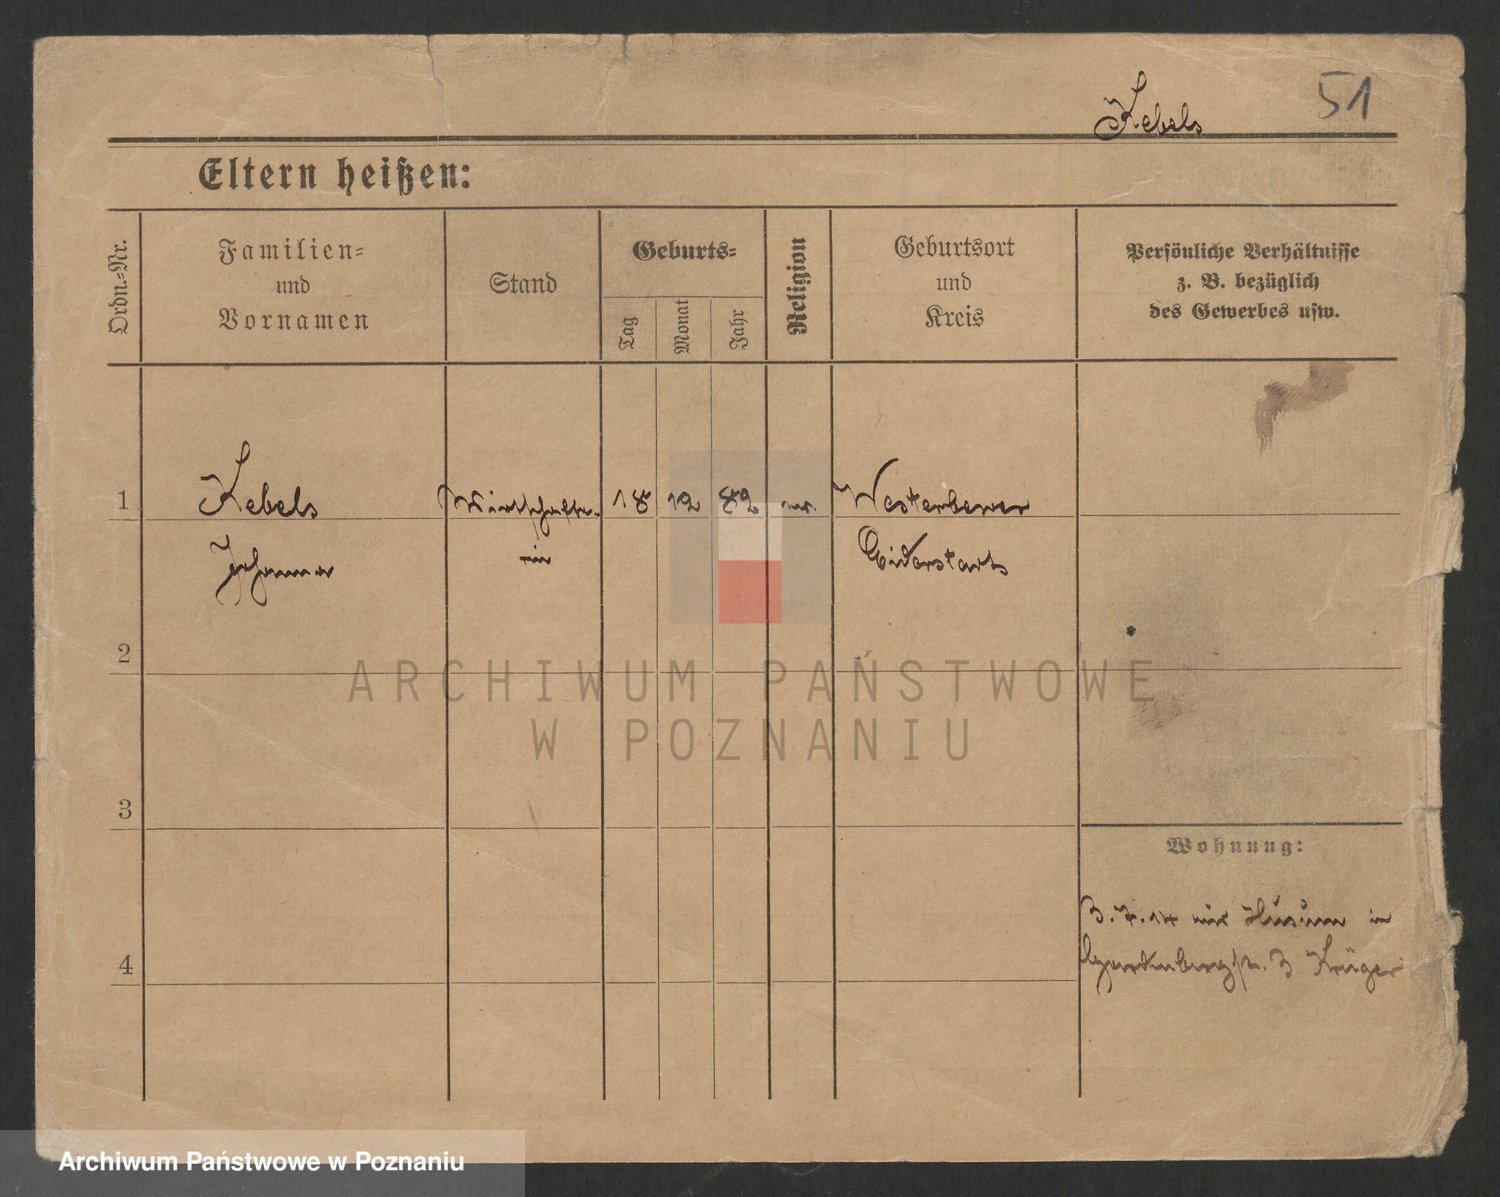 51
Kebels
Eltern heißen:
Ordn.-Nr.
Familien-
und
Vornamen
Stand
Geburts-
Tag
Monat
Jahr
Religion
Geburtsort
und
Kreis
Persönliche Verhältnisse
z. B. bezüglich
des Gewerbes usw.
1
Kebels Wirtschafter- 18 12 82 Westerhever
Johanna in Eiderstadt
2
ARCHIWUM PAŃSTWOWE
W POZNANIU
3
Wohnung:
3.7.14 aus Husum in
4
3 Krüger
Archiwum Państwowe w Poznaniu